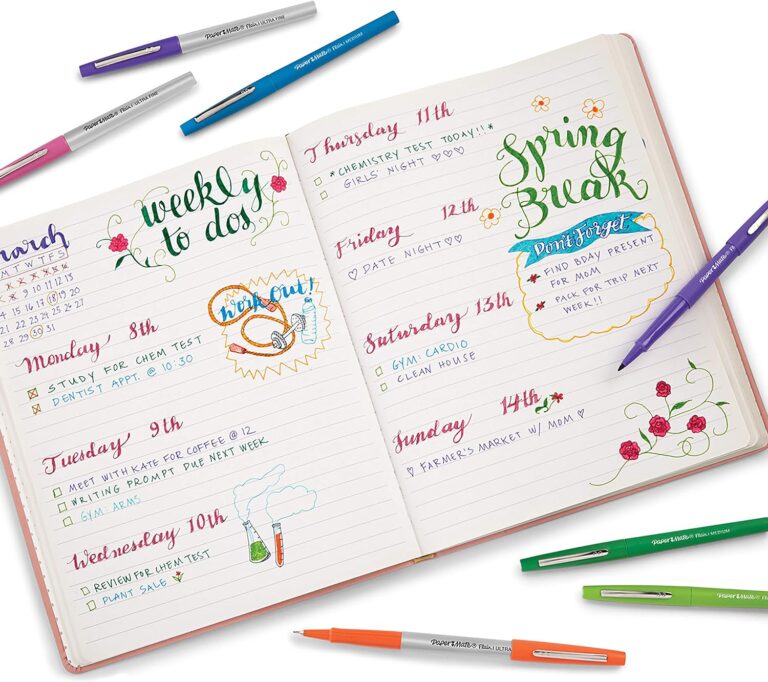 Paper Mate® Flair. ULTRA FINE
Paper Mate® Flair. MEDIUM
Paper Mate® Flair. ULTRA FINE
march
M T W T F S
weekly
to dos
Work Out!
Monday 8th
STUDY FOR CHEM TEST
DENTIST APPT. @ 10:30
Tuesday 9th
MEET WITH KATE FOR COFFEE @ 12
WRITING PROMPT DUE NEXT WEEK
GYM: ARMS
Wednesday 10th
REVIEW FOR CHEM TEST
PLANT SALE
Thursday 11th
*CHEMISTRY TEST TODAY!!*
GIRLS' NIGHT ♡♡♡
Friday 12th
♡ DATE NIGHT ♡♡
Saturday 13th
GYM: CARDIO
CLEAN HOUSE
Sunday 14th
♡ FARMER'S MARKET W/ MOM ♡
Spring
Break
Don't Forget
FIND BDAY PRESENT
FOR MOM
PACK FOR TRIP NEXT
WEEK!!
Paper Mate®
Paper Mate® Flair. MEDIUM
Paper Mate® Flair. MEDIUM
Paper Mate® Flair. ULTRA